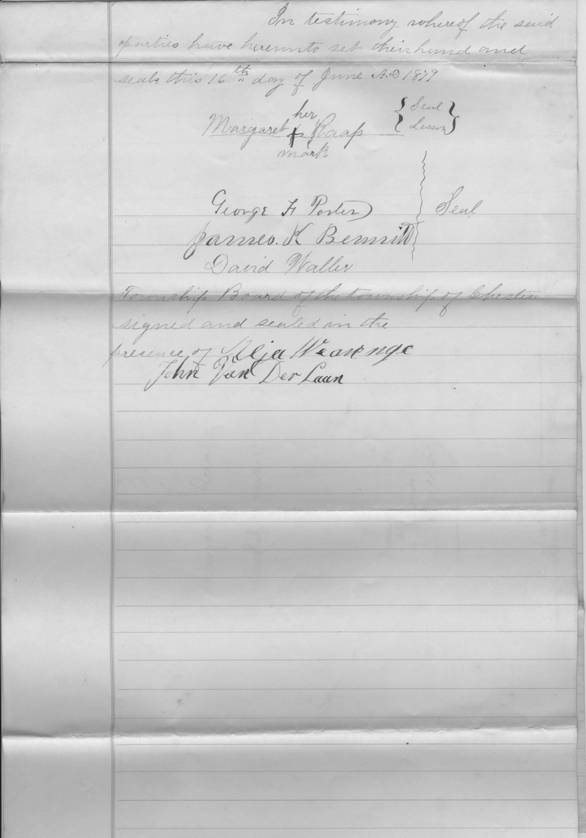 In testimony whereof the said
parties have hereunto set their hand and
seals this 16th day of June A.D 1879
her
Margaret + Raap { Seal }
mark
George H Porter } Seal
James. K Bennitt
David Waller
Township Board of the township of Chester
signed and sealed in the
presence of
John Van Der Laan